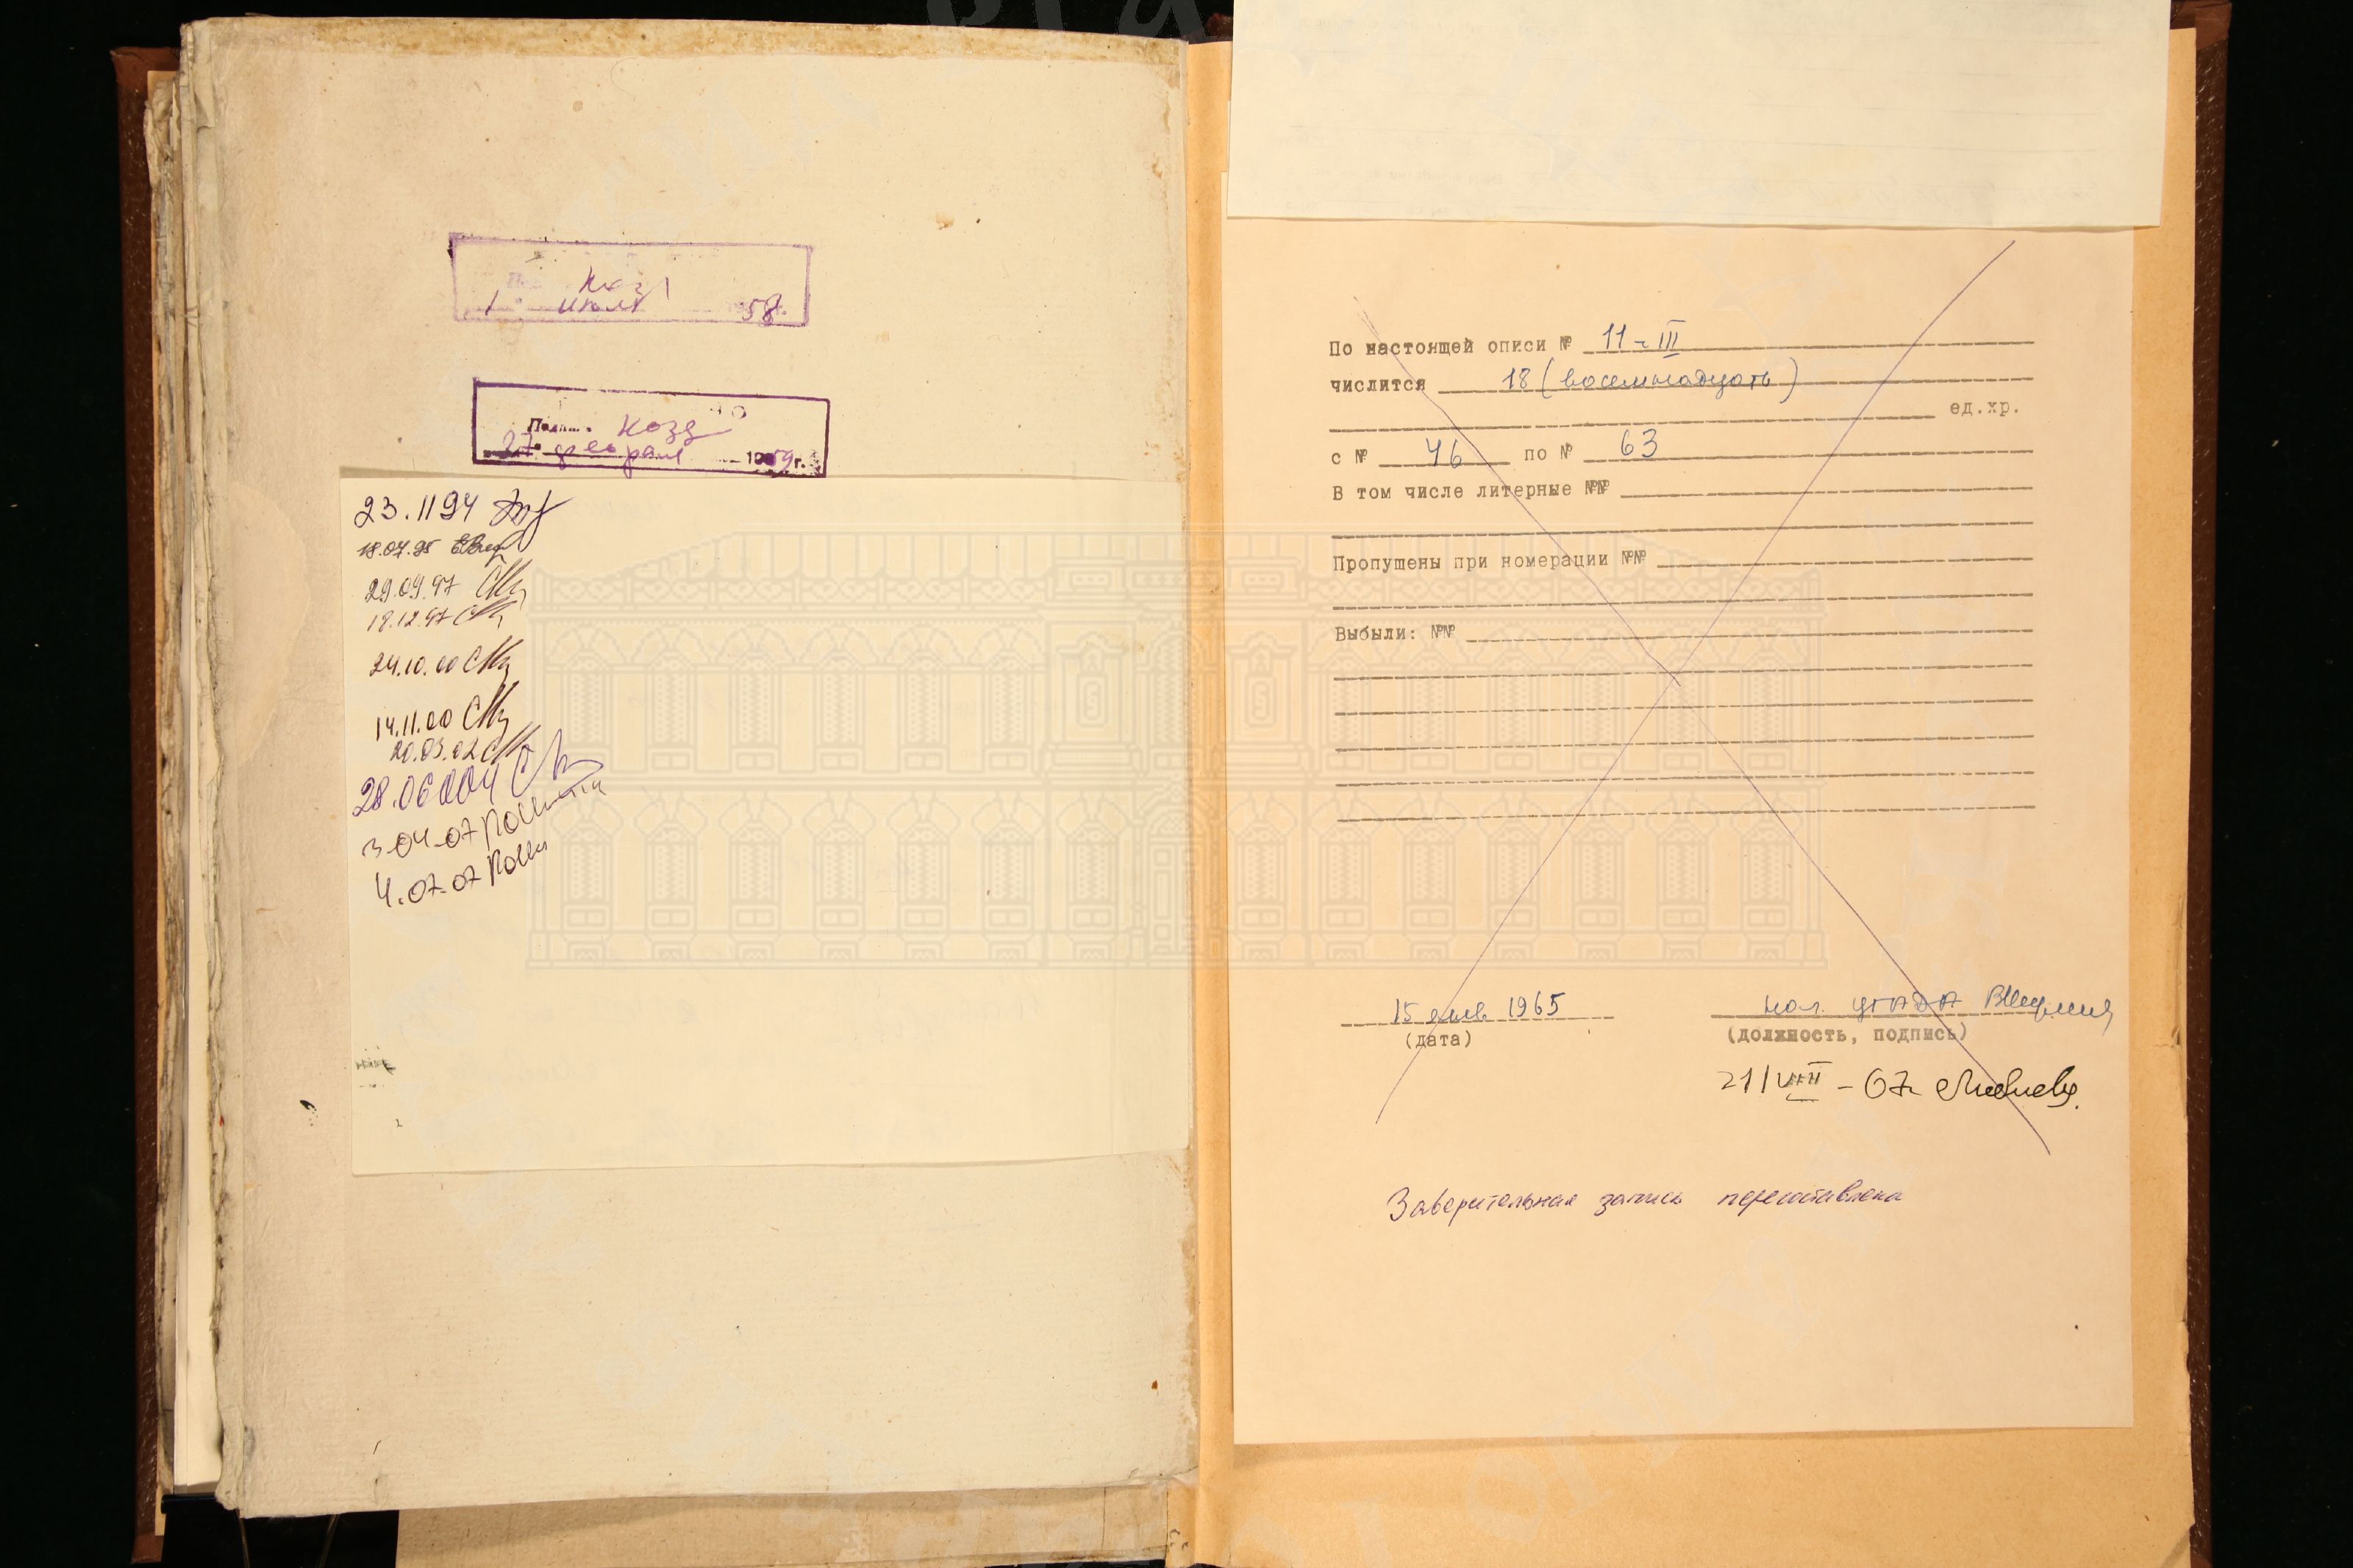 1 июля 1958г.
Подпись Козл
27 февраля 1959г.
23.11 94
18.07.95
29.09.97
18.12.97
24.10.00
14.11.00
20.03.02
28.06 004
3.04.07
4.07.07
По настоящей описи № 11-III
числится 18 (восемнадцать)
ед.хр.
с № 46 по № 63
В том числе литерные №№
Пропушены при номерации №№
Выбыли: №№
15 янв 1965
(дата)
нач. ЦГАДА
(должность, подпись)
21/VIII - 67г.
Заверительная запись пересоставлена